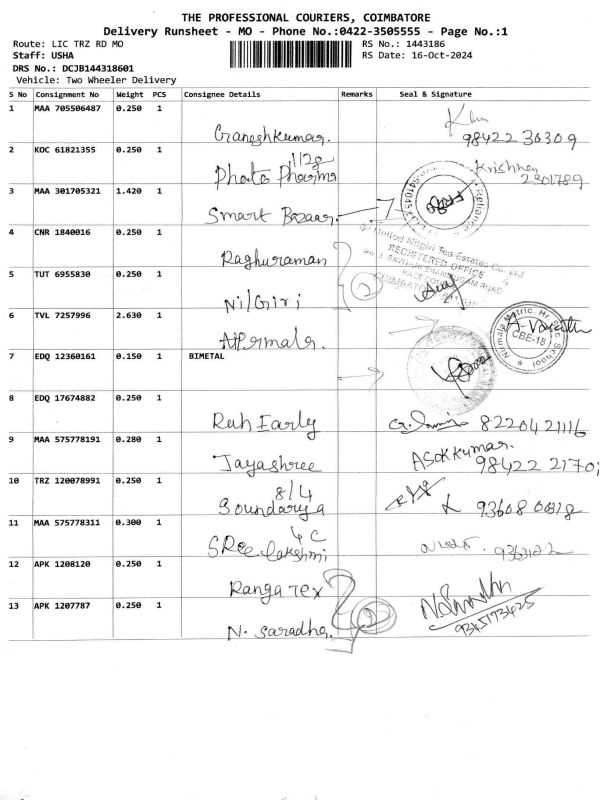 THE PROFESSIONAL COURIERS, COIMBATORE
Delivery Runsheet - MO - Phone No.:0422-3505555 - Page No.:1
Route: LIC TRZ RD MO
RS No.: 1443186
Staff: USHA
RS Date: 16-Oct-2024
DRS No.: DCJB144318601
Vehicle: Two Wheeler Delivery
S No Consignment No Weight PCS Consignee Details Remarks Seal & Signature
1 MAA 705506487 0.250 1
Ganeshkumar. 98422 30309
2 KOC 61821355 0.250 1
Krishnan
Photo Pharma 2301789
3 MAA 301705321 1.420 1
Smart Bazaar. Reliance
4 CNR 1840016 0.250 1
United Nilgiri Tea Estates Co. Ltd
REGISTERED OFFICE
Raghuraman
5 TUT 6955830 0.250 1
Nilgiri 2
6 TVL 7257996 2.630 1
Nirmala Matric. Hr. Sec School
CBE-18
7 EDQ 12360161 0.150 1 BIMETAL
8 EDQ 17674882 0.250 1
Early 8220421116
9 MAA 575778191 0.280 1
Asokkumar.
Jayashree 98422 2170
10 TRZ 120078991 0.250 1
8/4
Soundarya
11 MAA 575778311 0.300 1
4C
SRee Lakshmi
12 APK 1208120 0.250 1
Ranga Tex
13 APK 1207787 0.250 1
2
N. Saradha. 9345173425